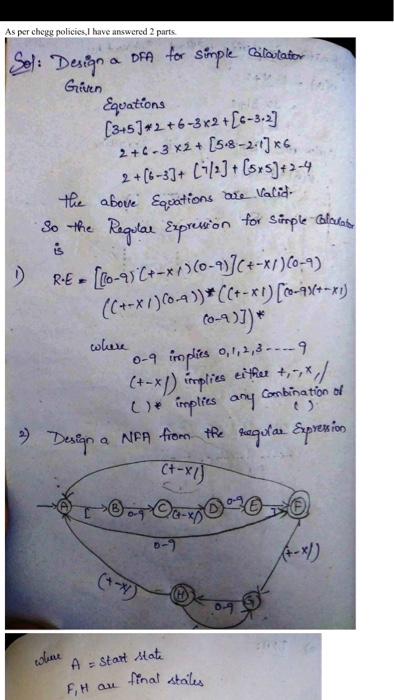 As per chegg policies,I have answered 2 parts.
Sol: Design a DFA for simple Calculator
Given
Equations
[3+5]*2+6-3×2+[6-3·2]
2+6-3×2+[5·8-2·1]×6
2+[6-3]+[7/2]+[5×5]+2-4
the above Equations are Valid.
So the Regular Expression for simple Calculator
is
1) R·E = [(0-9)(+-×/)(0-9)](+-×/)(0-9)
((+-×/)(0-9))*((+-×/)[(0-9)(+-×/)
(0-9)])*
where
0-9 implies 0,1,2,3----9
(+-×/) implies either +,-,×,/
( )* implies any Combination of
( ).
2) Design a NFA from the regular Expression
(+-×/)
A [ B 0-9 C (+-×/) D 0-9 E ] F
0-9
(+-×/)
(+-×/)
H 0-9 G
where A = Start state
F,H are final states